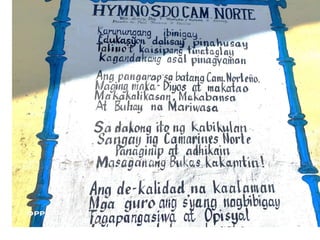 HYMNO SDO CAM NORTE
Karunungang ibinigay
Edukasyon dalisay pinahusay
Talino't kaisipang tinataglay
Kagandahang asal pinagyaman
Ang pangarap sa batang Cam. Norteño.
Maging maka-Diyos at makatao
Makakalikasan, Makabansa
At Buhay na Mariwasa
Sa dakong ito ng kabikulan
Sangay ng Camarines Norte
Panaginip at adhikain
Masaganang Bukas kakamtin!
Ang de-kalidad na kaalaman
Mga guro ang syang nagbibigay
Tagapangasiwa at Opisyal
OPP